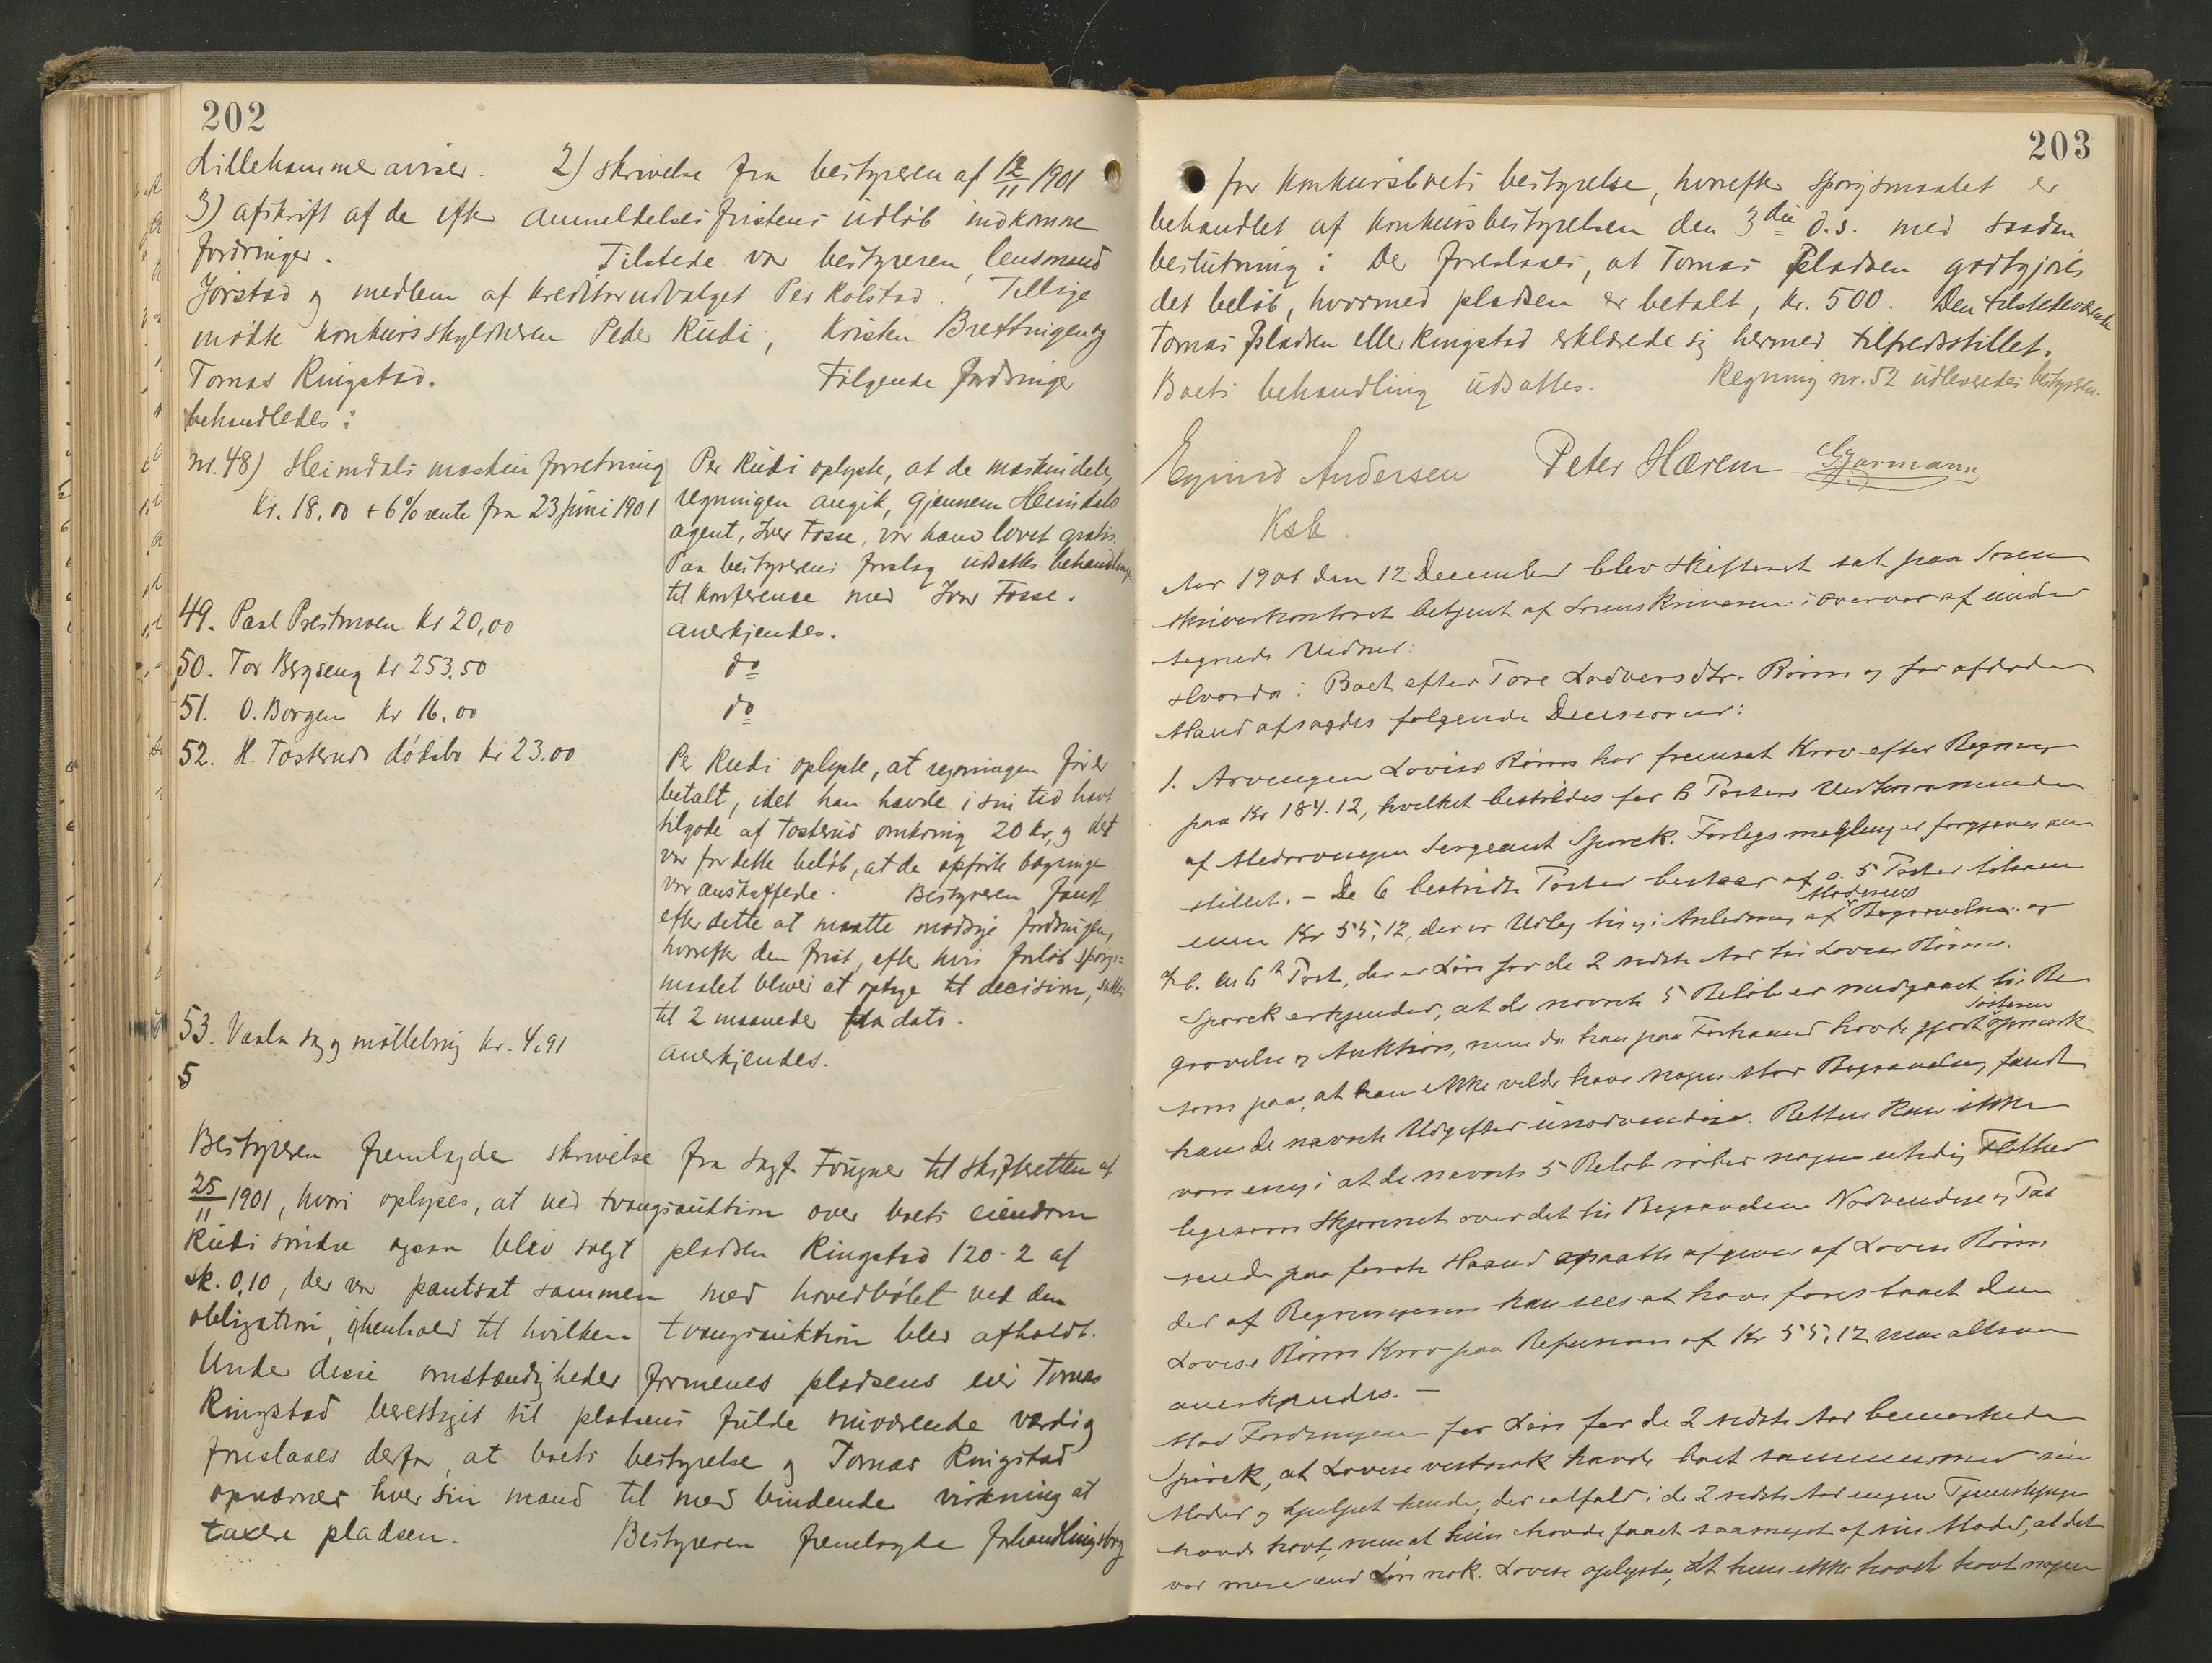 202
Lillehammer aviser. 2) Skrivelse fra bestyreren af 12/11 1901
3) afskrift af de efter anmeldelsesfristens udløb indkomne
fordringer. Tilstede var bestyreren, lensmand
Jørstad og medlem af kreditorudvalget Per Kolstad. Tillige
mødte konkursskyldneren Peder Rudi, Kristen Brettingen og
Tomas Ringstad. Følgende fordringer
behandledes:
nr. 48) Heimdals maskinforretning
Kr. 18,00 + 6% rente fra 23 juni 1901
Per Rudi oplyste, at de maskindele,
regningen angik, gjennem Heimdals
agent, Iver Fosse, var ham lovet gratis.
Paa bestyrerens forslag udsattes behandlingen
til konference med Iver Fosse.
49. Paal Prestmoen Kr 20,00
anerkjendes.
50. Tor Bergseng Kr 253,50
do
51. O. Borgen Kr 16,00
do
52. H. Tosteruds dødsbo Kr 23,00
Per Rudi oplyste, at regningen før er
betalt, idet han havde i sin tid havt
tilgode af Tosterud omkring 20 kr, og det
var for dette beløb, at de opførte bøgninge
var anskaffede. Bestyreren fandt
efter dette at maatte modsige fordringen,
hvorefter den frist, efter hvis forløb spørgs-
maalet bliver at optage til decision, sattes
til 2 maaneder fra dato.
53. Vaala sag og møllebrug Kr. 4,91
anerkjendes.
5
Bestyreren fremlagde skrivelse fra sagf. Fougner til skifteretten af
25/11 1901, hvori oplyses, at ved tvangsauktion over boets eiendom
Rudi søndre ogsaa blev solgt pladsen Ringstad 120-2 af
sk. 0,10, der var pantsat sammen med hovedbølet ved den
obligation, i henhold til hvilken tvangsauktion blev afholdt.
Under disse omstændigheder formenes pladsens eier Tomas
Ringstad berettiget til pladsens fulde nuværende værdi og
foreslaaes derfor, at boets bestyrelse og Tomas Ringstad
opnævner hver sin mand til med bindende virkning at
taxere pladsen. Bestyreren fremlagde forhandlingsbog
203
for konkursboets bestyrelse, hvorefter spørgsmaalet er
behandlet af konkursbestyrelsen den 3die d.s. med saadan
beslutning: Der foreslaaes, at Tomas Pladsen godtgjøres
det beløb, hvormed pladsen er betalt, kr. 500. Den tilstedeværende
Tomas Pladsen eller Ringstad erklærede sig hermed tilfredsstillet.
Boets behandling udsattes. Regning nr. 52 udleveredes bestyreren.
Eyvind Andersen Peter Hærem GGarmann
Kst.
Aar 1901 den 12 December blev Skifteret sat paa Soren
skriverkontoret betjent af Sorenskriveren i Overvær af under
tegnede Vidner:
Hvorda: Boet efter Tore Ladversdtr. Rønn og før afdøde
Mand afsagdes følgende Decisioner:
1. Arvingen Lovise Rønn har fremsat Krav efter Regning
paa Kr 184.12, hvilket bestrides for 6 Posters Vedkommende
af Medarvingen Sergeant Spørck. Forligsmægling er forgjæves an
stillet. – De 6 bestridte Poster bestaar af a. 5 Poster tilsam
men Kr 55,12, der er Udlæg til og i Anledning af Moderens Begravelse og
af b. en 6te Post, der er Løn for de 2 sidste Aar til Lovise Rønn.
Spørck erkjender, at de nævnte 5 Beløb er medgaaet til Be
gravelse og Auktion, men da han paa Forhaand havde gjort Søsteren opmærk
som paa, at han ikke vilde have nogen stor Begravelse, fandt
han de nævnte Udgifter unødvendige. Retten kan ikke
være enig i at de nævnte 5 Beløb røber nogen utidig Flothed
ligesom Skjønnet over det til Begravelsen Nødvendige og Pas
sende paa første Haand maatte afgives af Lovise Rønn
der af Regningerne kan sees at have forestaaet den.
Lovise Rønns Krav paa Refusion af Kr 55,12 maa altsaa
anerkjendes. –
Mod Fordringen for Løn for de 2 sidste Aar bemærkede
Spørck, at Lovise vistnok havde boet sammen med sin
Moder og hjulpet hende, der ialfald i de 2 sidste Aar ingen Tjenestepige
havde havt, men at hun havde faaet saameget af sin Moder, at det
var mere end Løn nok. Lovise oplyste, at hun ikke havde havt nogen